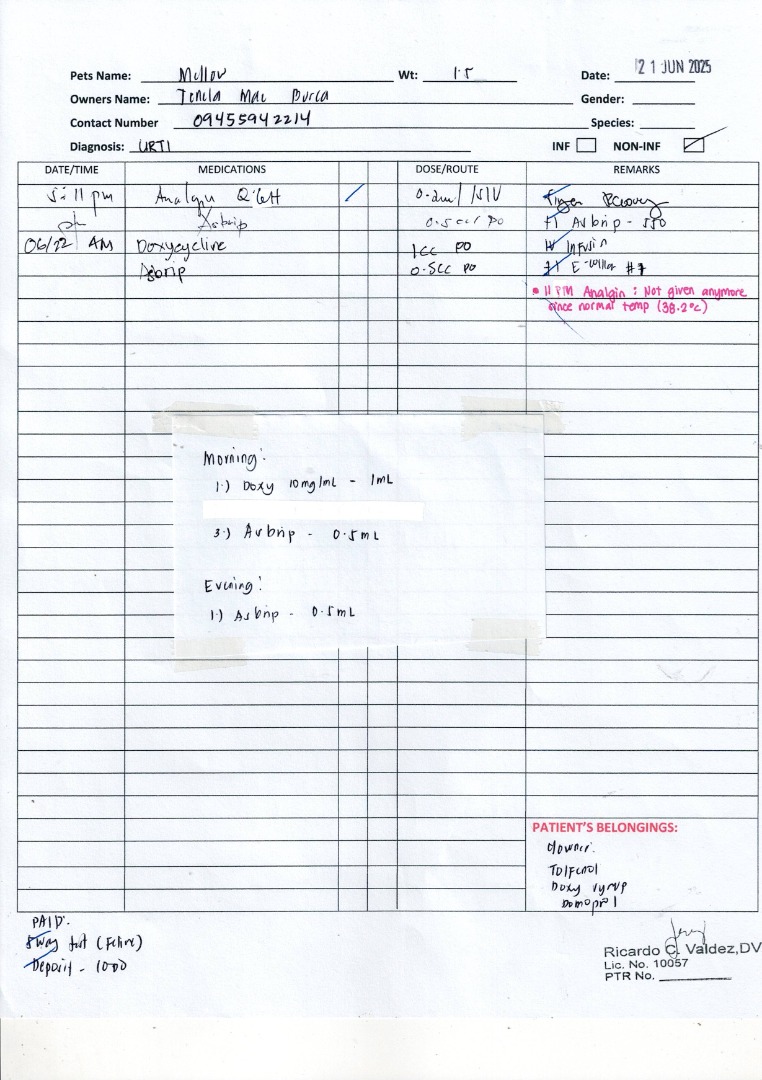 Pets Name: Mellow Wt: 1.5 Date: 21 JUN 2025
Owners Name: Mae Gender:
Contact Number 09455942214 Species:
Diagnosis: URTI INF NON-INF
DATE/TIME MEDICATIONS DOSE/ROUTE REMARKS
5:11 pm Analgin
Asbrip 0.5cc/ PO #1 Asbrip - 550
06/22 AM Doxycycline 1cc PO IV Infusin
Asbrip 0.5cc PO #1 E-collar #7
• 11 PM Analgin : Not given anymore
since normal temp (38.2°c)
Morning:
1.) Doxy 10mg/mL - 1mL
3.) Asbrip - 0.5mL
Evening:
1.) Asbrip - 0.5mL
PATIENT'S BELONGINGS:
Tolfenol
Doxy syrup
PAID:
5way test (Feline)
Deposit - 1000
Ricardo C. Valdez,DV
Lic. No. 10057
PTR No.